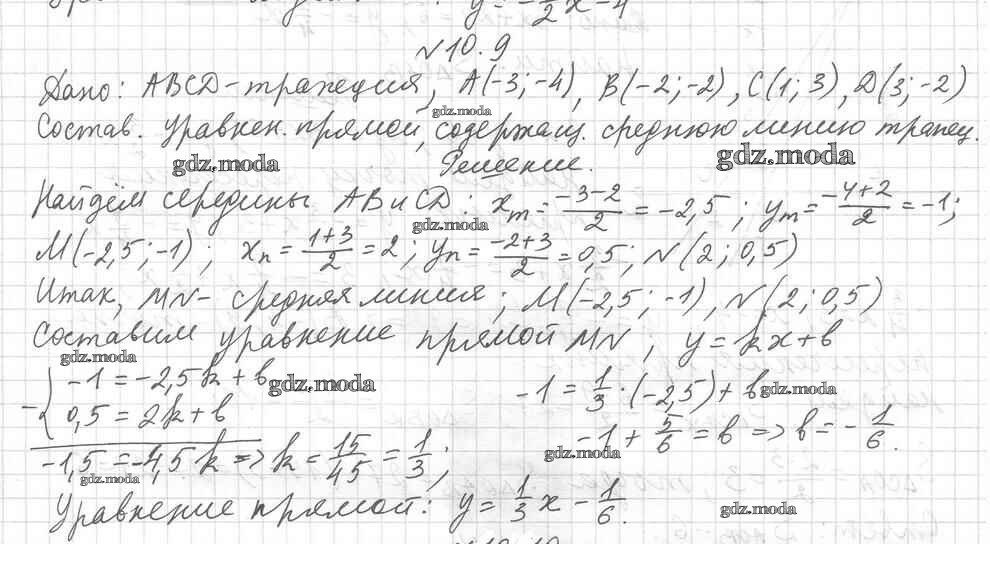 y = -1/2 x - 4
№10.9
Дано: ABCD-трапеция, A(-3;-4), B(-2;-2), C(1;3), D(3;-2)
gdz.moda
Состав. уравнен. прямой, содержащ. среднюю линию трапец.
gdz.moda Решение. gdz.moda
Найдём середины AB и CD: x_m = (-3-2)/2 = -2,5; y_m = (-4+2)/2 = -1;
gdz.moda
M(-2,5;-1); x_n = (1+3)/2 = 2; y_n = (-2+3)/2 = 0,5; N(2;0,5)
Итак, MN- средняя линия; M(-2,5;-1), N(2;0,5)
Составим уравнение прямой MN, y = kx+b
gdz.moda
-{ -1 = -2,5k + b gdz.moda
0,5 = 2k + b
-1,5 = -4,5k => k = 15/45 = 1/3;
gdz.moda
-1 = 1/3 · (-2,5) + b gdz.moda
-1 + 5/6 = b => b = -1/6.
gdz.moda
Уравнение прямой: y = 1/3 x - 1/6.
gdz.moda